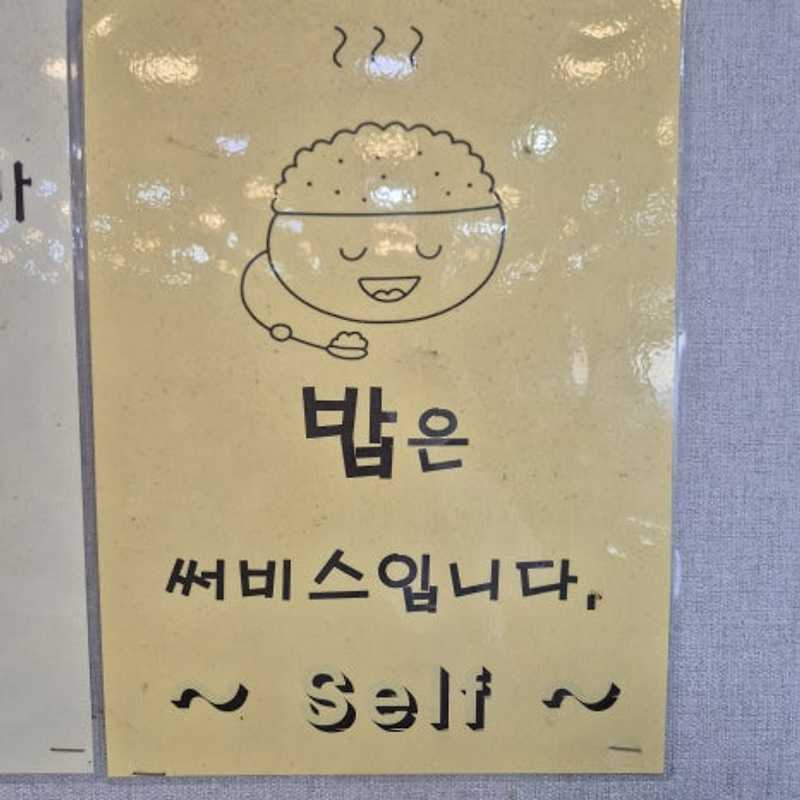 밥은
써비스입니다.
~ Self ~